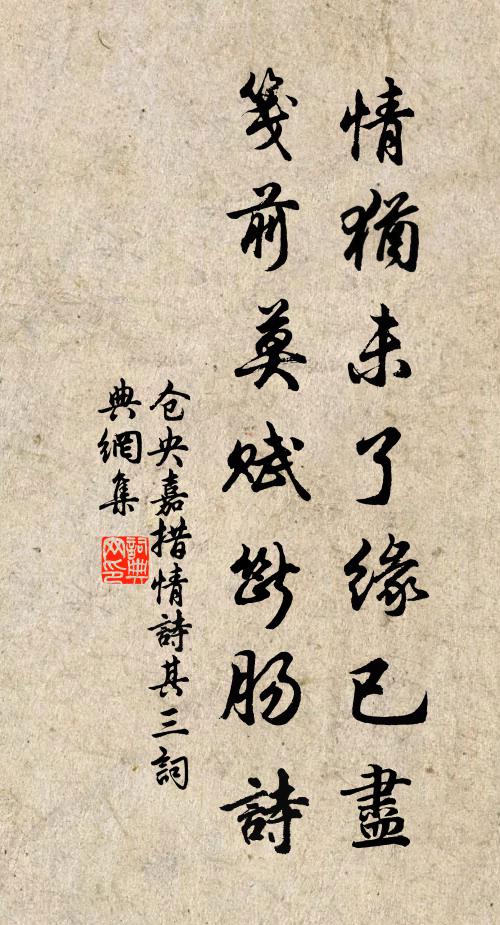 情猶未了緣已盡
箋前莫賦斷肠詩
仓央嘉措情詩其三詞
典網集
詞典
网印